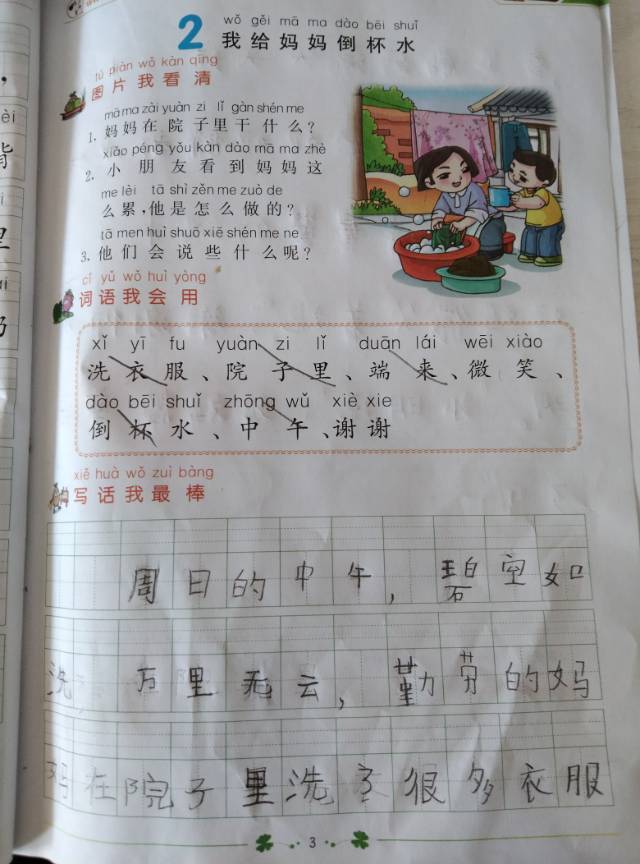 2
wǒ gěi mā ma dào bēi shuǐ
我给妈妈倒杯水
tú piàn wǒ kàn qīng
图片我看清
mā ma zài yuàn zi lǐ gàn shén me
1. 妈妈在院子里干什么？
xiǎo péng yǒu kàn dào mā ma zhè
2. 小朋友看到妈妈这
me lèi tā shì zěn me zuò de
么累，他是怎么做的？
tā men huì shuō xiē shén me ne
3. 他们会说些什么呢？
cí yǔ wǒ huì yòng
词语我会用
xǐ yī fu yuàn zi lǐ duān lái wēi xiào
洗衣服、院子里、端来、微笑、
dào bēi shuǐ zhōng wǔ xiè xie
倒杯水、中午、谢谢
xiě huà wǒ zuì bàng
写话我最棒
周日的中午，碧空如
洗，万里无云，勤劳的妈
妈在院子里洗了很多衣服
3